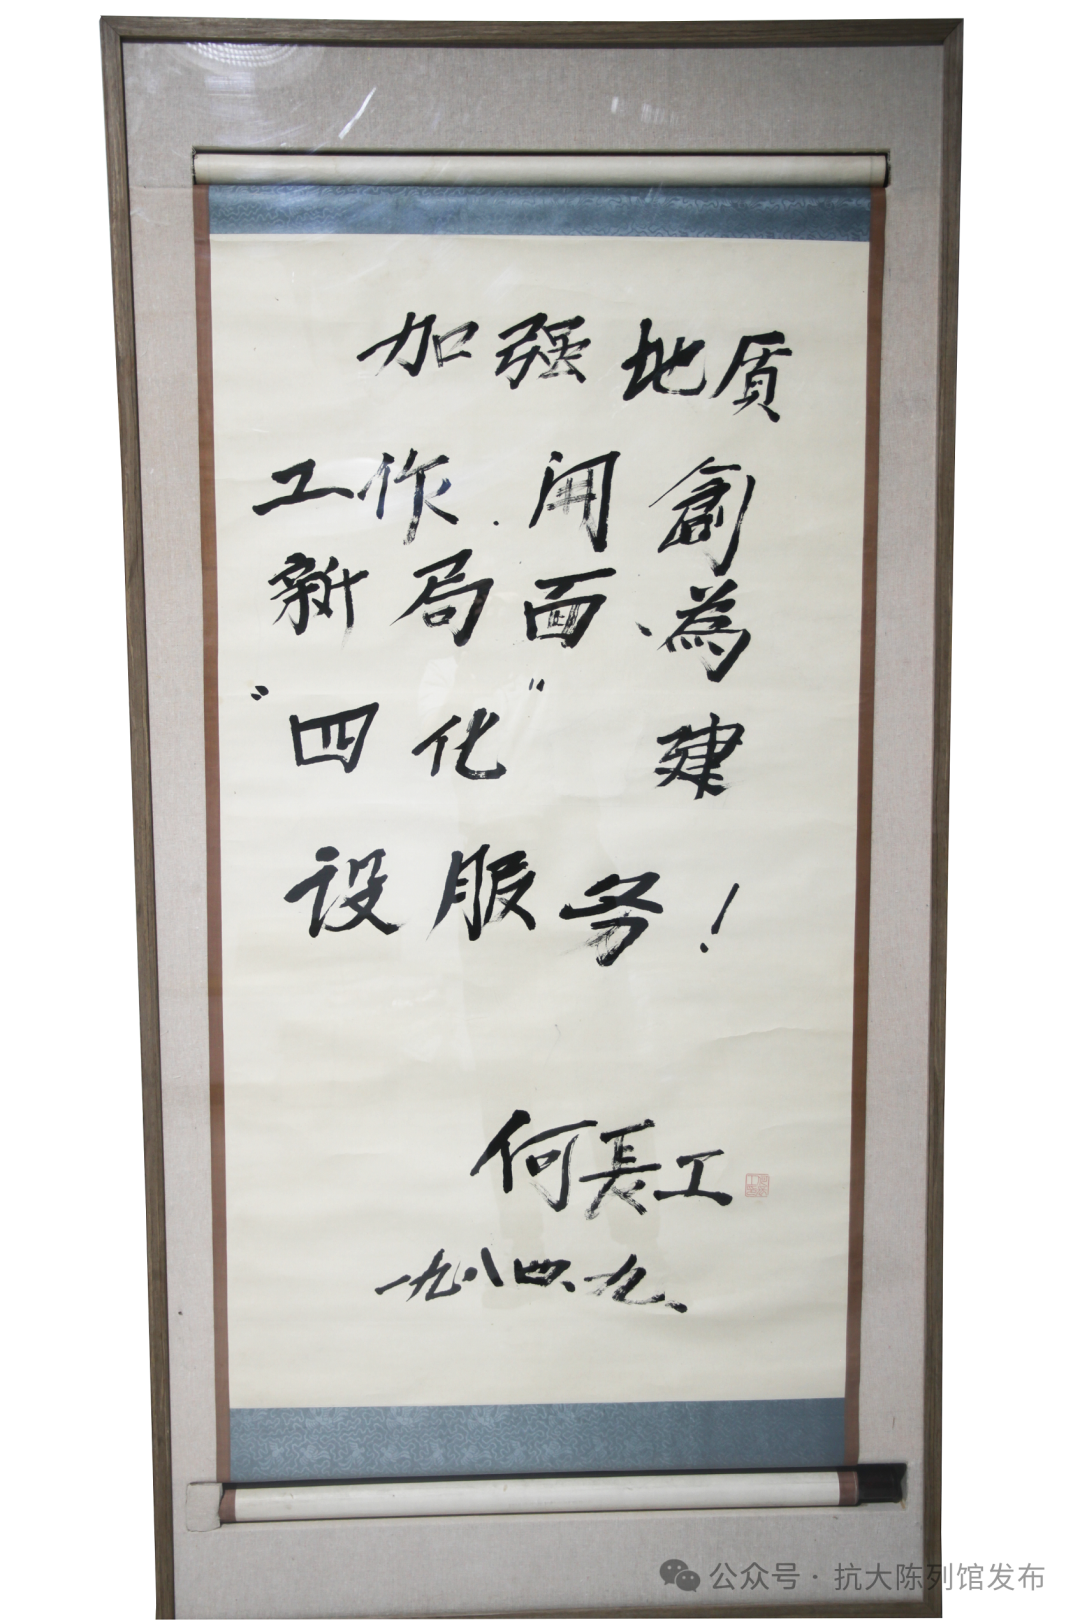 加强地质
工作．开創
新局面、為
“四化”建
设服务！
何長工
一九八四、九、
公众号·抗大陈列馆发布